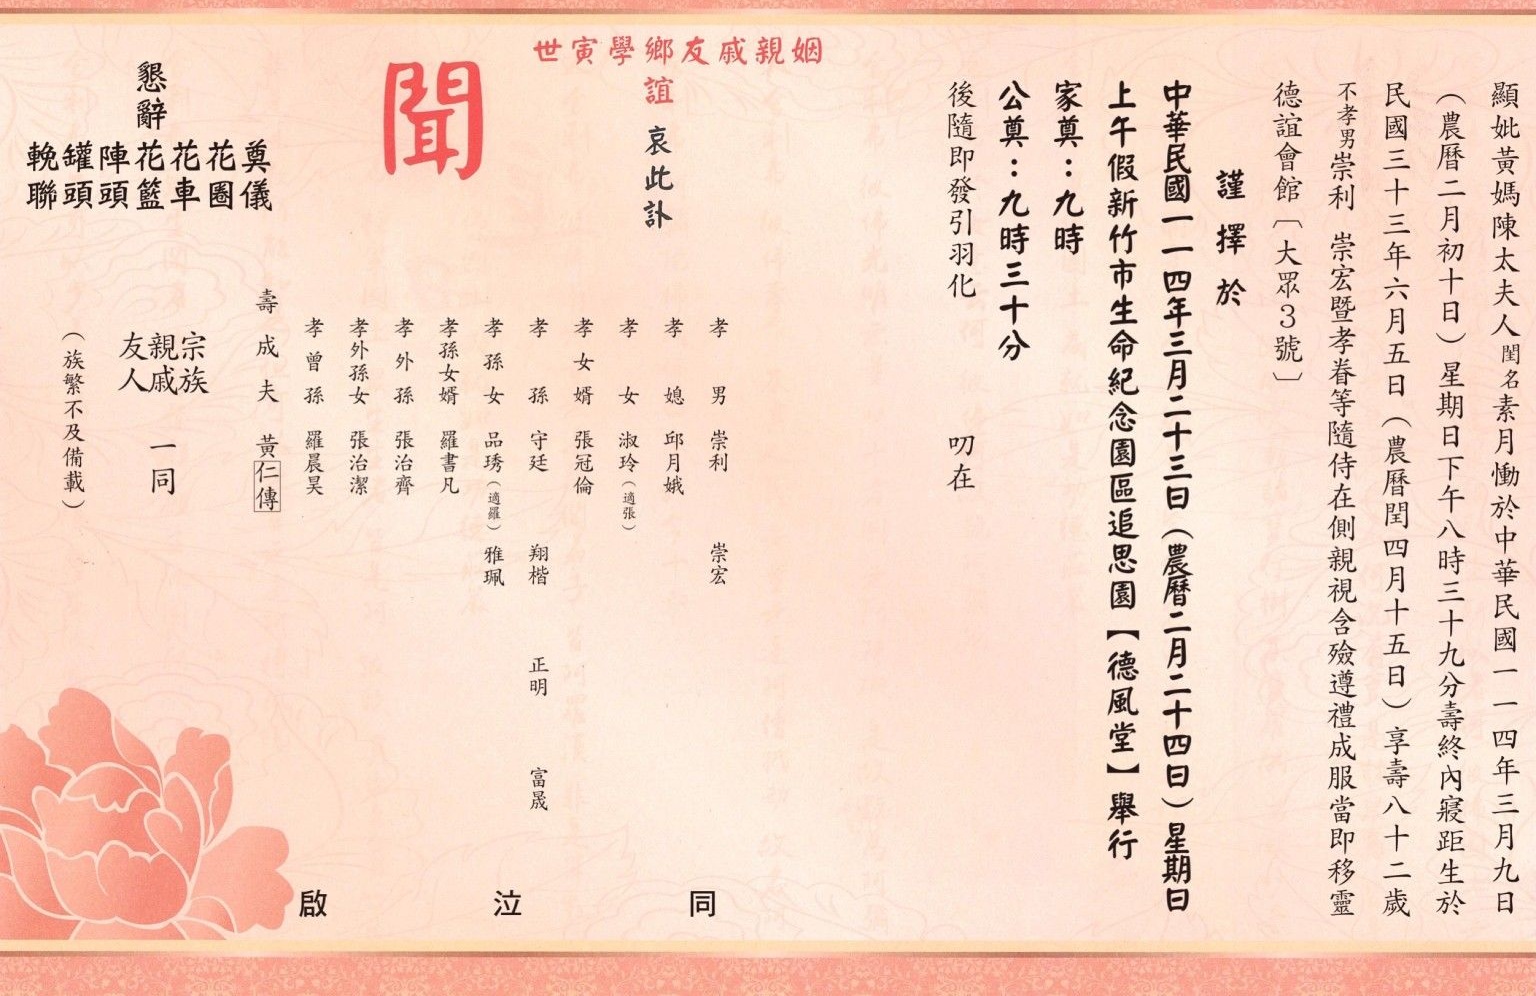 顯妣黃媽陳太夫人閨名素月慟於中華民國一一四年三月九日
（農曆二月初十日）星期日下午八時三十九分壽終內寢距生於
民國三十三年六月五日（農曆閏四月十五日）享壽八十二歲
不孝男崇利 崇宏暨孝眷等隨侍在側親視含殮遵禮成服當即移靈
德誼會館〔大眾3號〕
謹擇於
中華民國一一四年三月二十三日（農曆二月二十四日）星期日
上午假新竹市生命紀念園區追思園【德風堂】舉行
家奠：九時
公奠：九時三十分
後隨即發引羽化 叨在
姻親戚友鄉學寅世
誼 哀此訃
聞
孝男 崇利 崇宏
孝媳 邱月娥
孝女 淑玲（適張）
孝女婿 張冠倫
孝孫 守廷 翔楷 正明 富晟
孝孫女 品琇（適羅） 雅珮
孝孫女婿 羅書凡
孝外孫 張治齊
孝外孫女 張治潔
孝曾孫 羅晨昊
壽成夫 黃仁傳
同泣啟
宗族
親戚
友人
一同
（族繁不及備載）
懇辭
奠儀
花圈
花車
花籃
陣頭
罐頭
輓聯